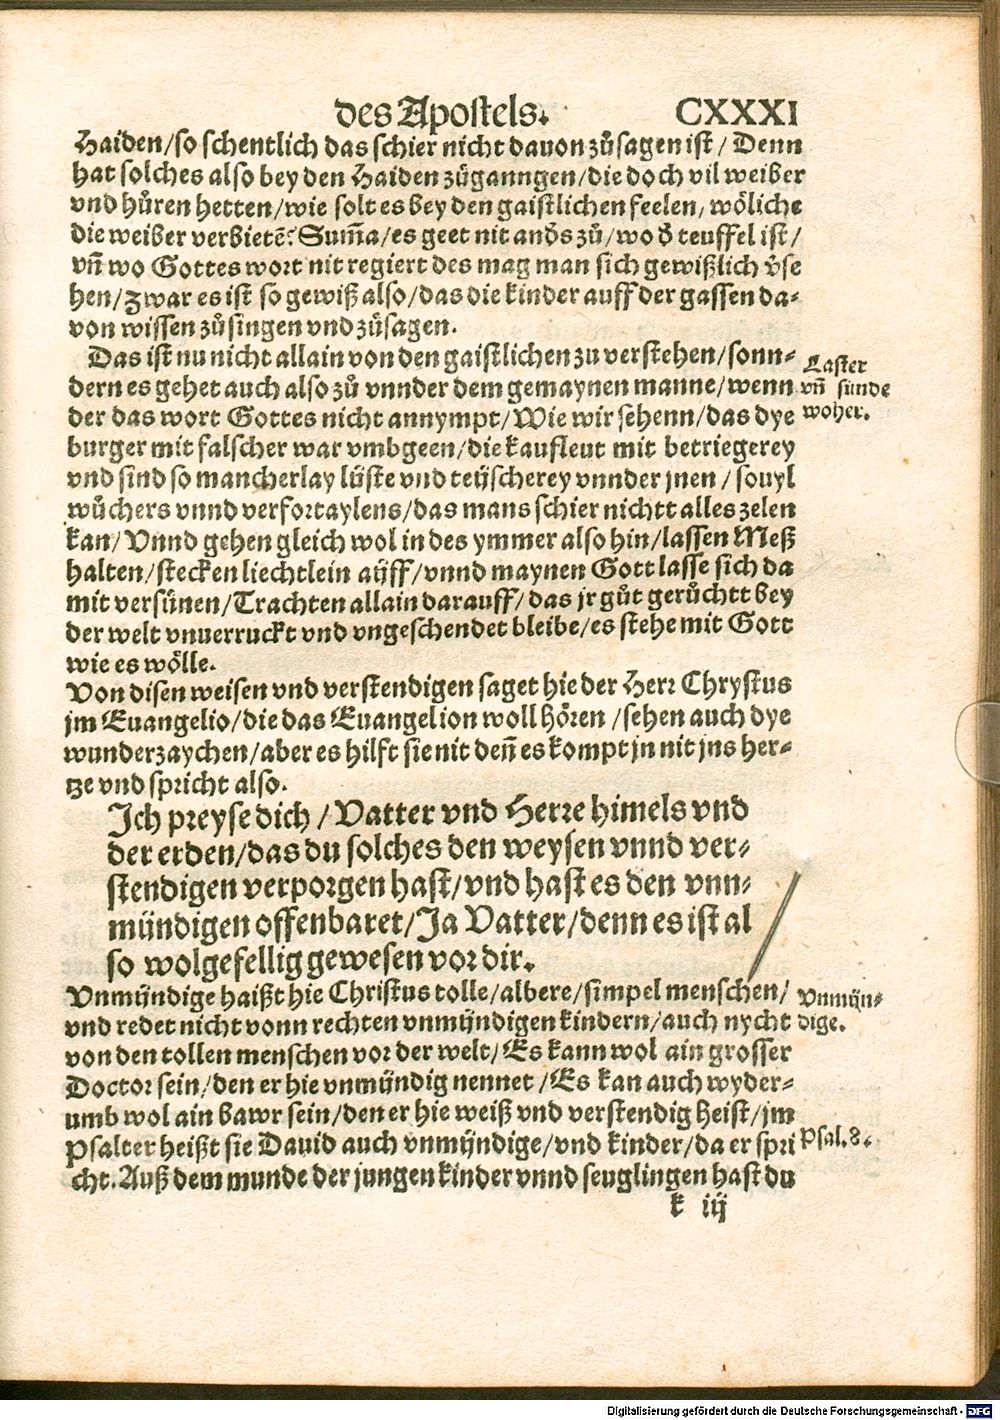 des Apostels. CXXXI
Haiden/so schentlich das schier nicht dauon zůsagen ist/ Denn
hat solches also bey den Haiden zůganngen/die doch vil weiber
vnd hůren hetten/wie solt es bey den gaistlichen feelen/ wöliche
die weiber verbietē? Sum̃a/es geet nit anďs zů/wo ď teuffel ist/
vñ wo Gottes wort nit regiert des mag man sich gewißlich v̊se
hen/zwar es ist so gewiß also/das die kinder auff der gassen da-
von wissen zůsingen vnd zůsagen.
Das ist nu nicht allain von den gaistlichen zu verstehen/sonn-
dern es gehet auch also zů vnnder dem gemaynen manne/wenn
der das wort Gottes nicht annympt/Wie wir sehenn/das dye
burger mit falscher war vmbgeen/die kaufleut mit betriegerey
vnd sind so mancherlay lüste vnd teüscherey vnnder jnen/souyl
wůchers vnnd verfortaylens/das mans schier nichtt alles zelen
kan/Vnnd gehen gleich wol in des ymmer also hin/lassen Meß
halten/stecken liechtlein aüff/vnnd maynen Gott lasse sich da
mit versünen/Trachten allain darauff/das jr gůt gerůchtt bey
der welt vnuerruckt vnd vngeschendet bleibe/es stehe mit Gott
wie es wölle.
Laster
vñ sünde
woher.
Von disen weisen vnd verstendigen saget hie der Herr Chrystus
jm Euangelio/die das Euangelion woll hören/sehen auch dye
wunderzaychen/aber es hilft sie nit deñ es kompt jn nit jns her-
tze vnd spricht also.
Ich preyse dich/Vatter vnd Herre himels vnd
der erden/das du solches den weysen vnnd ver-
stendigen verporgen hast/vnd hast es den vnn-
mündigen offenbaret/Ja Vatter/denn es ist al
so wolgefellig gewesen vor dir.
Vnmündige haißt hie Christus tolle/albere/simpel menschen/
vnd redet nicht vonn rechten vnmündigen kindern/auch nycht
von den tollen menschen vor der welt/Es kann wol ain grosser
Doctor sein/den er hie vnmündig nennet/Es kan auch wyder-
umb wol ain bawr sein/den er hie weiß vnd verstendig heist/jm
Psalter heißt sie Dauid auch vnmündige/vnd kinder/da er spri
cht. Auß dem munde der jungen kinder vnnd seuglingen hast du
Vnmün-
dige.
Psal. 8.
k iij
Digitalisierung gefördert durch die Deutsche Forschungsgemeinschaft - DFG